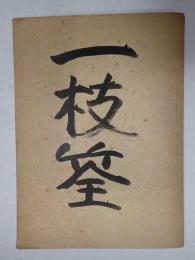 一枝筌